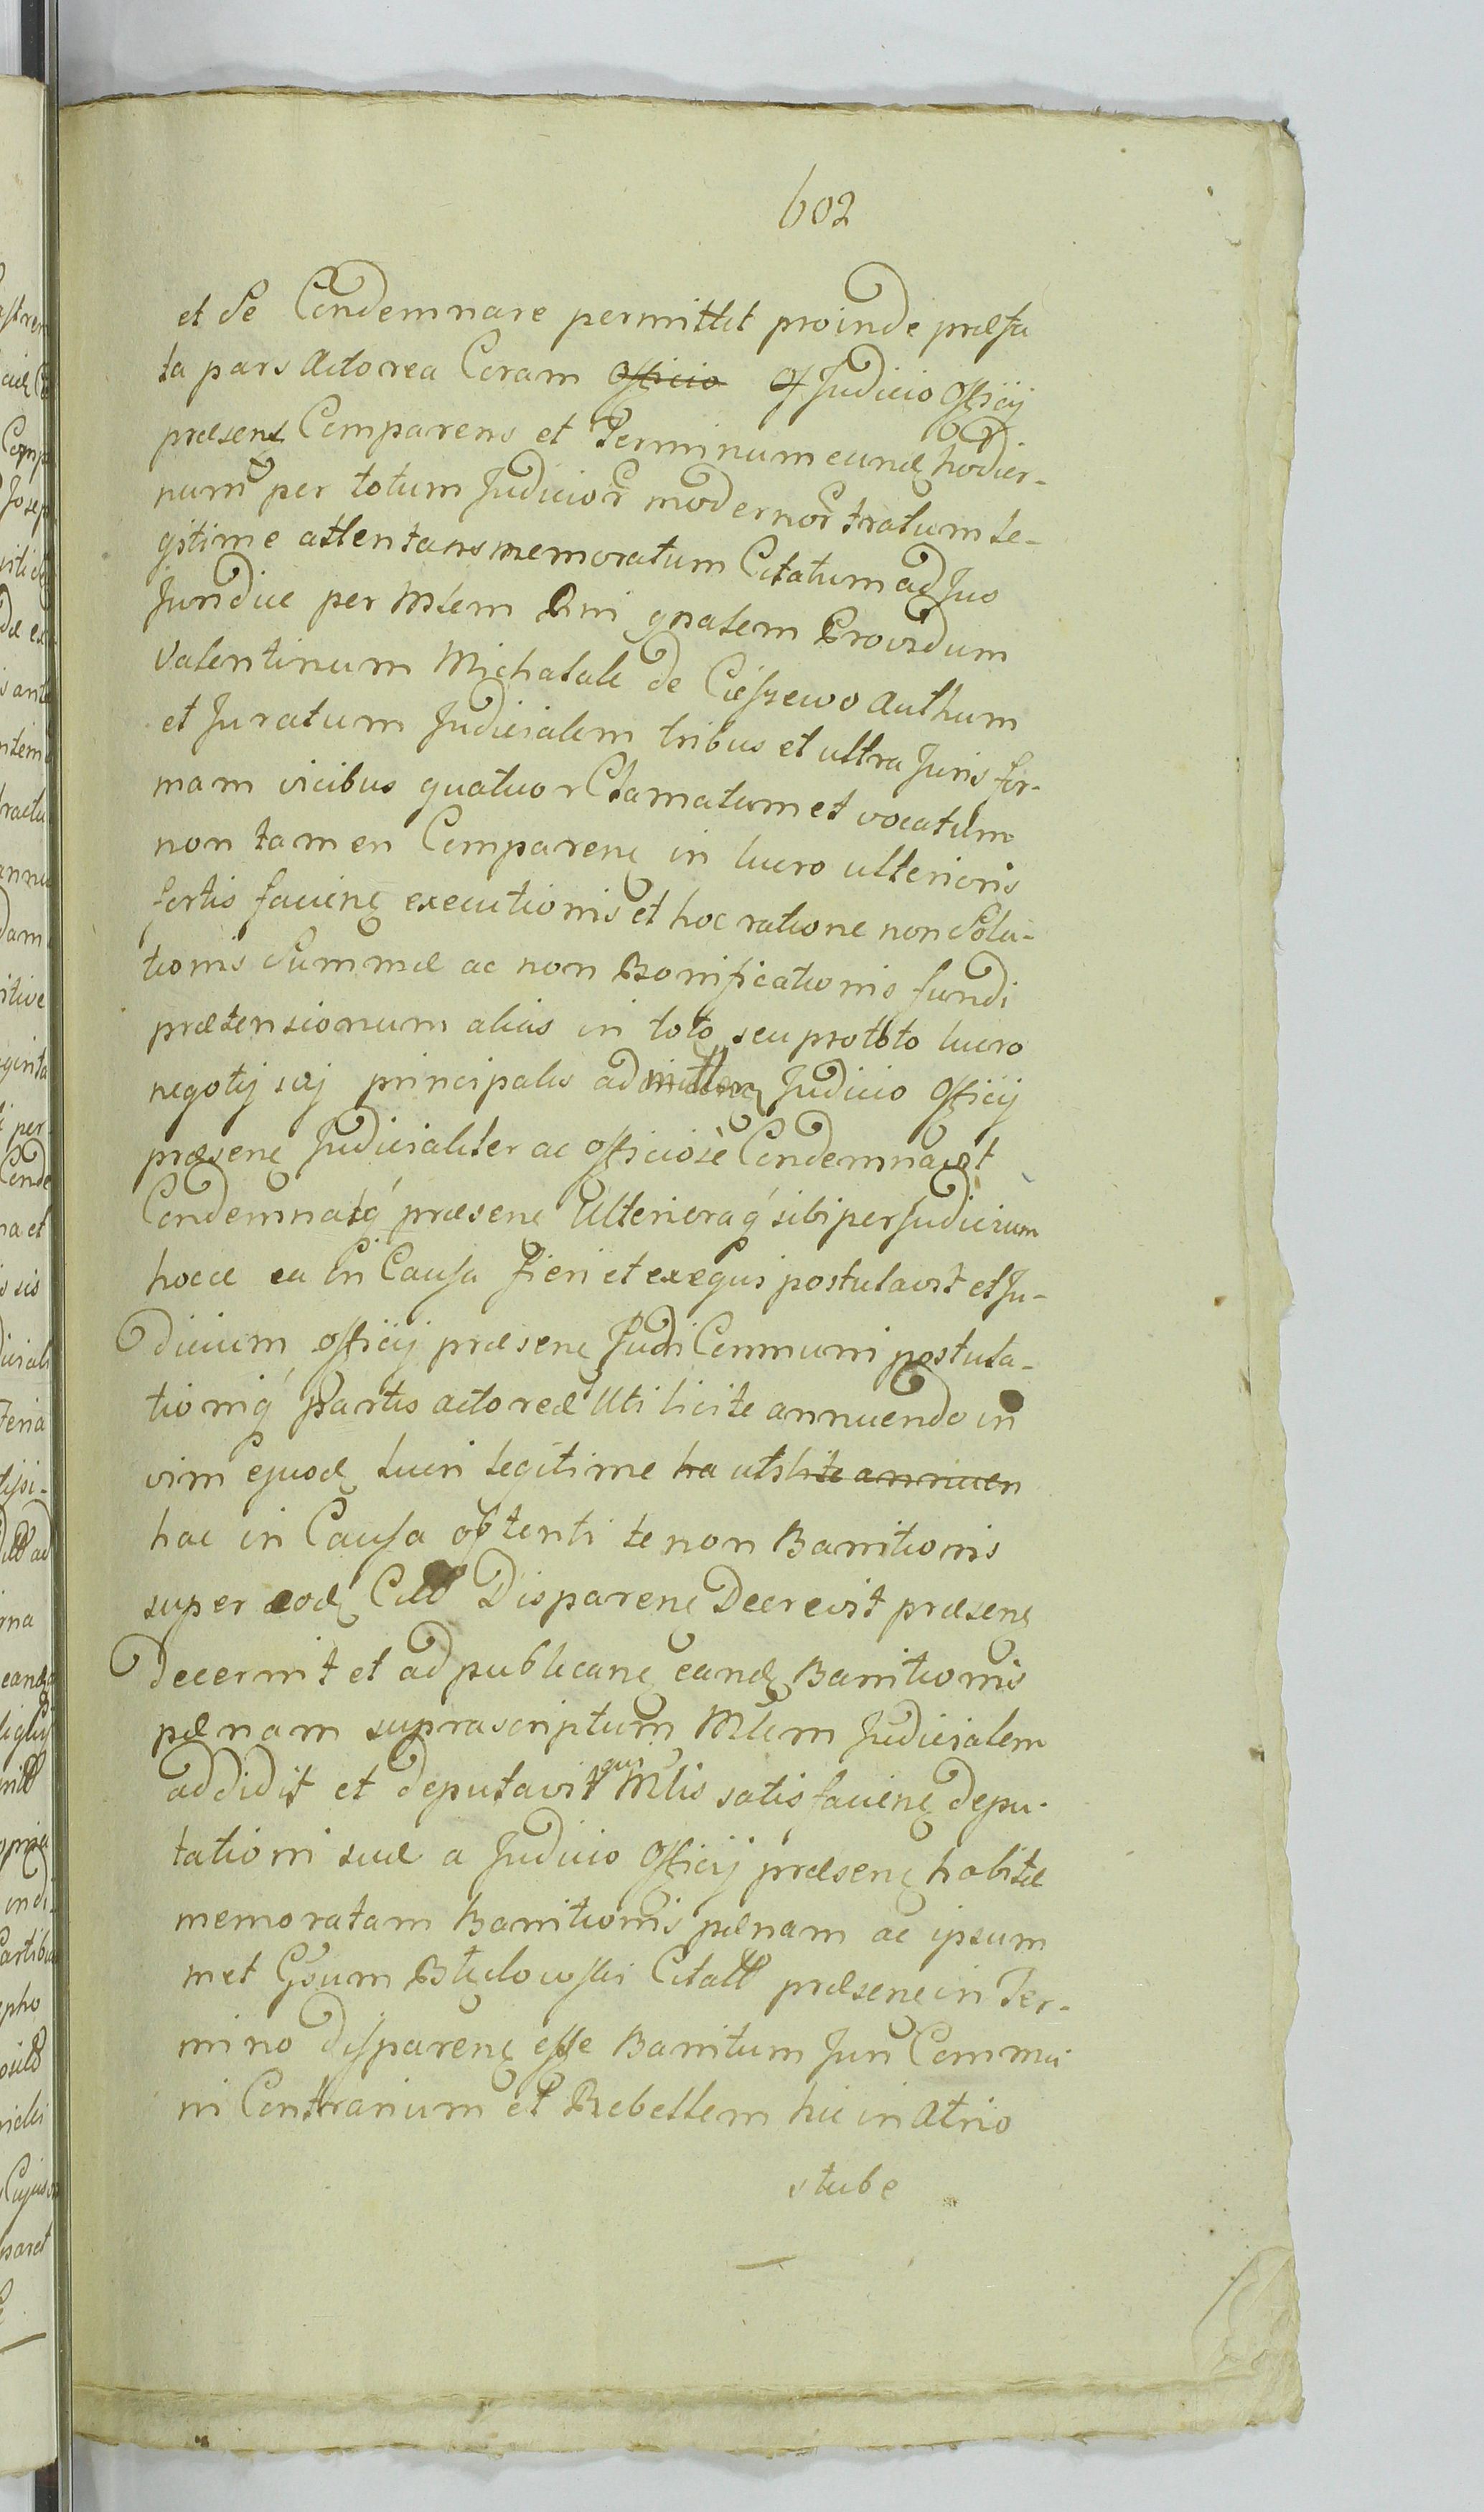 602
et se Condemnare permittit proinde præfa
ta pars Actorea Coram Officio Of Judicio Officij
præsens Comparens et Terminum eund hodier-
num per totum Judicior modernor tratum le-
gitime attentans memoratum Citatum ad Jus
Juridice per Mlem Rni gnalem Providum
Valentinum Michalak de Ciessewo Authum
et Juratum Judicialem tribus et ultra Juris for-
mam vicibus quatuor Clamatum et vocatum
non tamen Comparen in lucro ulterioris
fortis facien executionis et hoc ratione non Solu-
tionis Summæ ac non Bonificationis fundi
prætensionum alias in toto seu pro toto lucro
negotij sui principalis admitten Judicio Officij
præsen Judicialiter ac officiosè Condemnavit
Condemnatq præsen Ulterioraq sibi per Judicium
hocce ea in Causa fieri et exequi postulavit et Ju-
dicium officij præsen Juri Communi postula-
tioniq partis actoreæ Uti licite annuendo in
vim ejusd lucri legitime ha uti licite annuen
hac in Causa obtenti te non Bannitionis
super eod Citto Disparen Decrevit præsen
decernit et ad publican eand Bannitionis
pænam suprascriptum Mlem Judicialem
addidit et deputavit qui Mlis satisfacien depu-
tationi suæ a Judicio Officij præsen habitæ
memoratam Bannitionis pænam ac ipsum
met Gsum Błędowski Citatt præsen in Ter-
mino disparen esse Bannitum Juri Commu
ni Contrarium et Rebellem hic in Atrio
stubæ